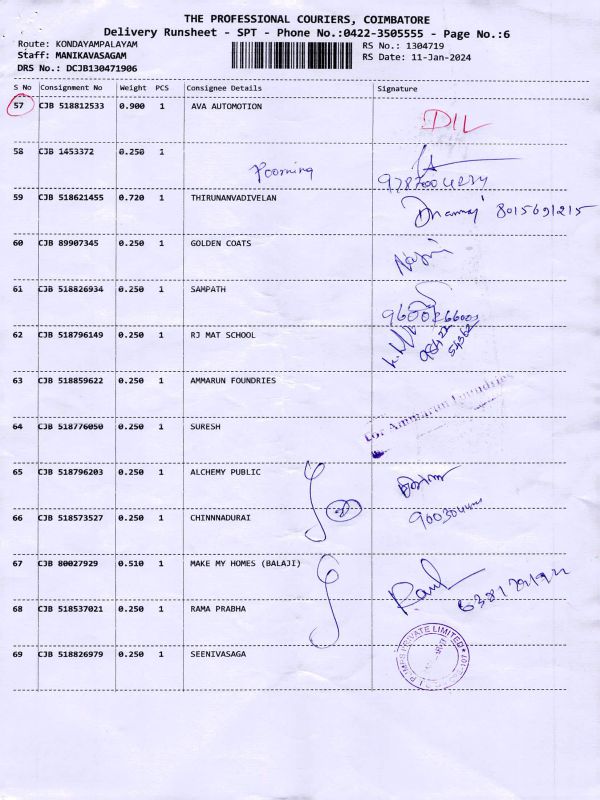 THE PROFESSIONAL COURIERS, COIMBATORE
Delivery Runsheet - SPT - Phone No.:0422-3505555 - Page No.:6
Route: KONDAYAMPALAYAM
Staff: MANIKAVASAGAM
DRS No.: DCJB130471906
RS No.: 1304719
RS Date: 11-Jan-2024
S No Consignment No Weight PCS Consignee Details Signature
57 CJB 518812533 0.900 1 AVA AUTOMOTION
58 CJB 1453372 0.250 1
59 CJB 518621455 0.720 1 THIRUNANVADIVELAN
Dhanraj 8015691215
60 CJB 89907345 0.250 1 GOLDEN COATS
61 CJB 518826934 0.250 1 SAMPATH
62 CJB 518796149 0.250 1 RJ MAT SCHOOL
63 CJB 518859622 0.250 1 AMMARUN FOUNDRIES
For Ammarun Foundries
64 CJB 518776050 0.250 1 SURESH
65 CJB 518796203 0.250 1 ALCHEMY PUBLIC
66 CJB 518573527 0.250 1 CHINNNADURAI
67 CJB 80027929 0.510 1 MAKE MY HOMES (BALAJI)
68 CJB 518537021 0.250 1 RAMA PRABHA
69 CJB 518826979 0.250 1 SEENIVASAGA
PUMPS PRIVATE LIMITED